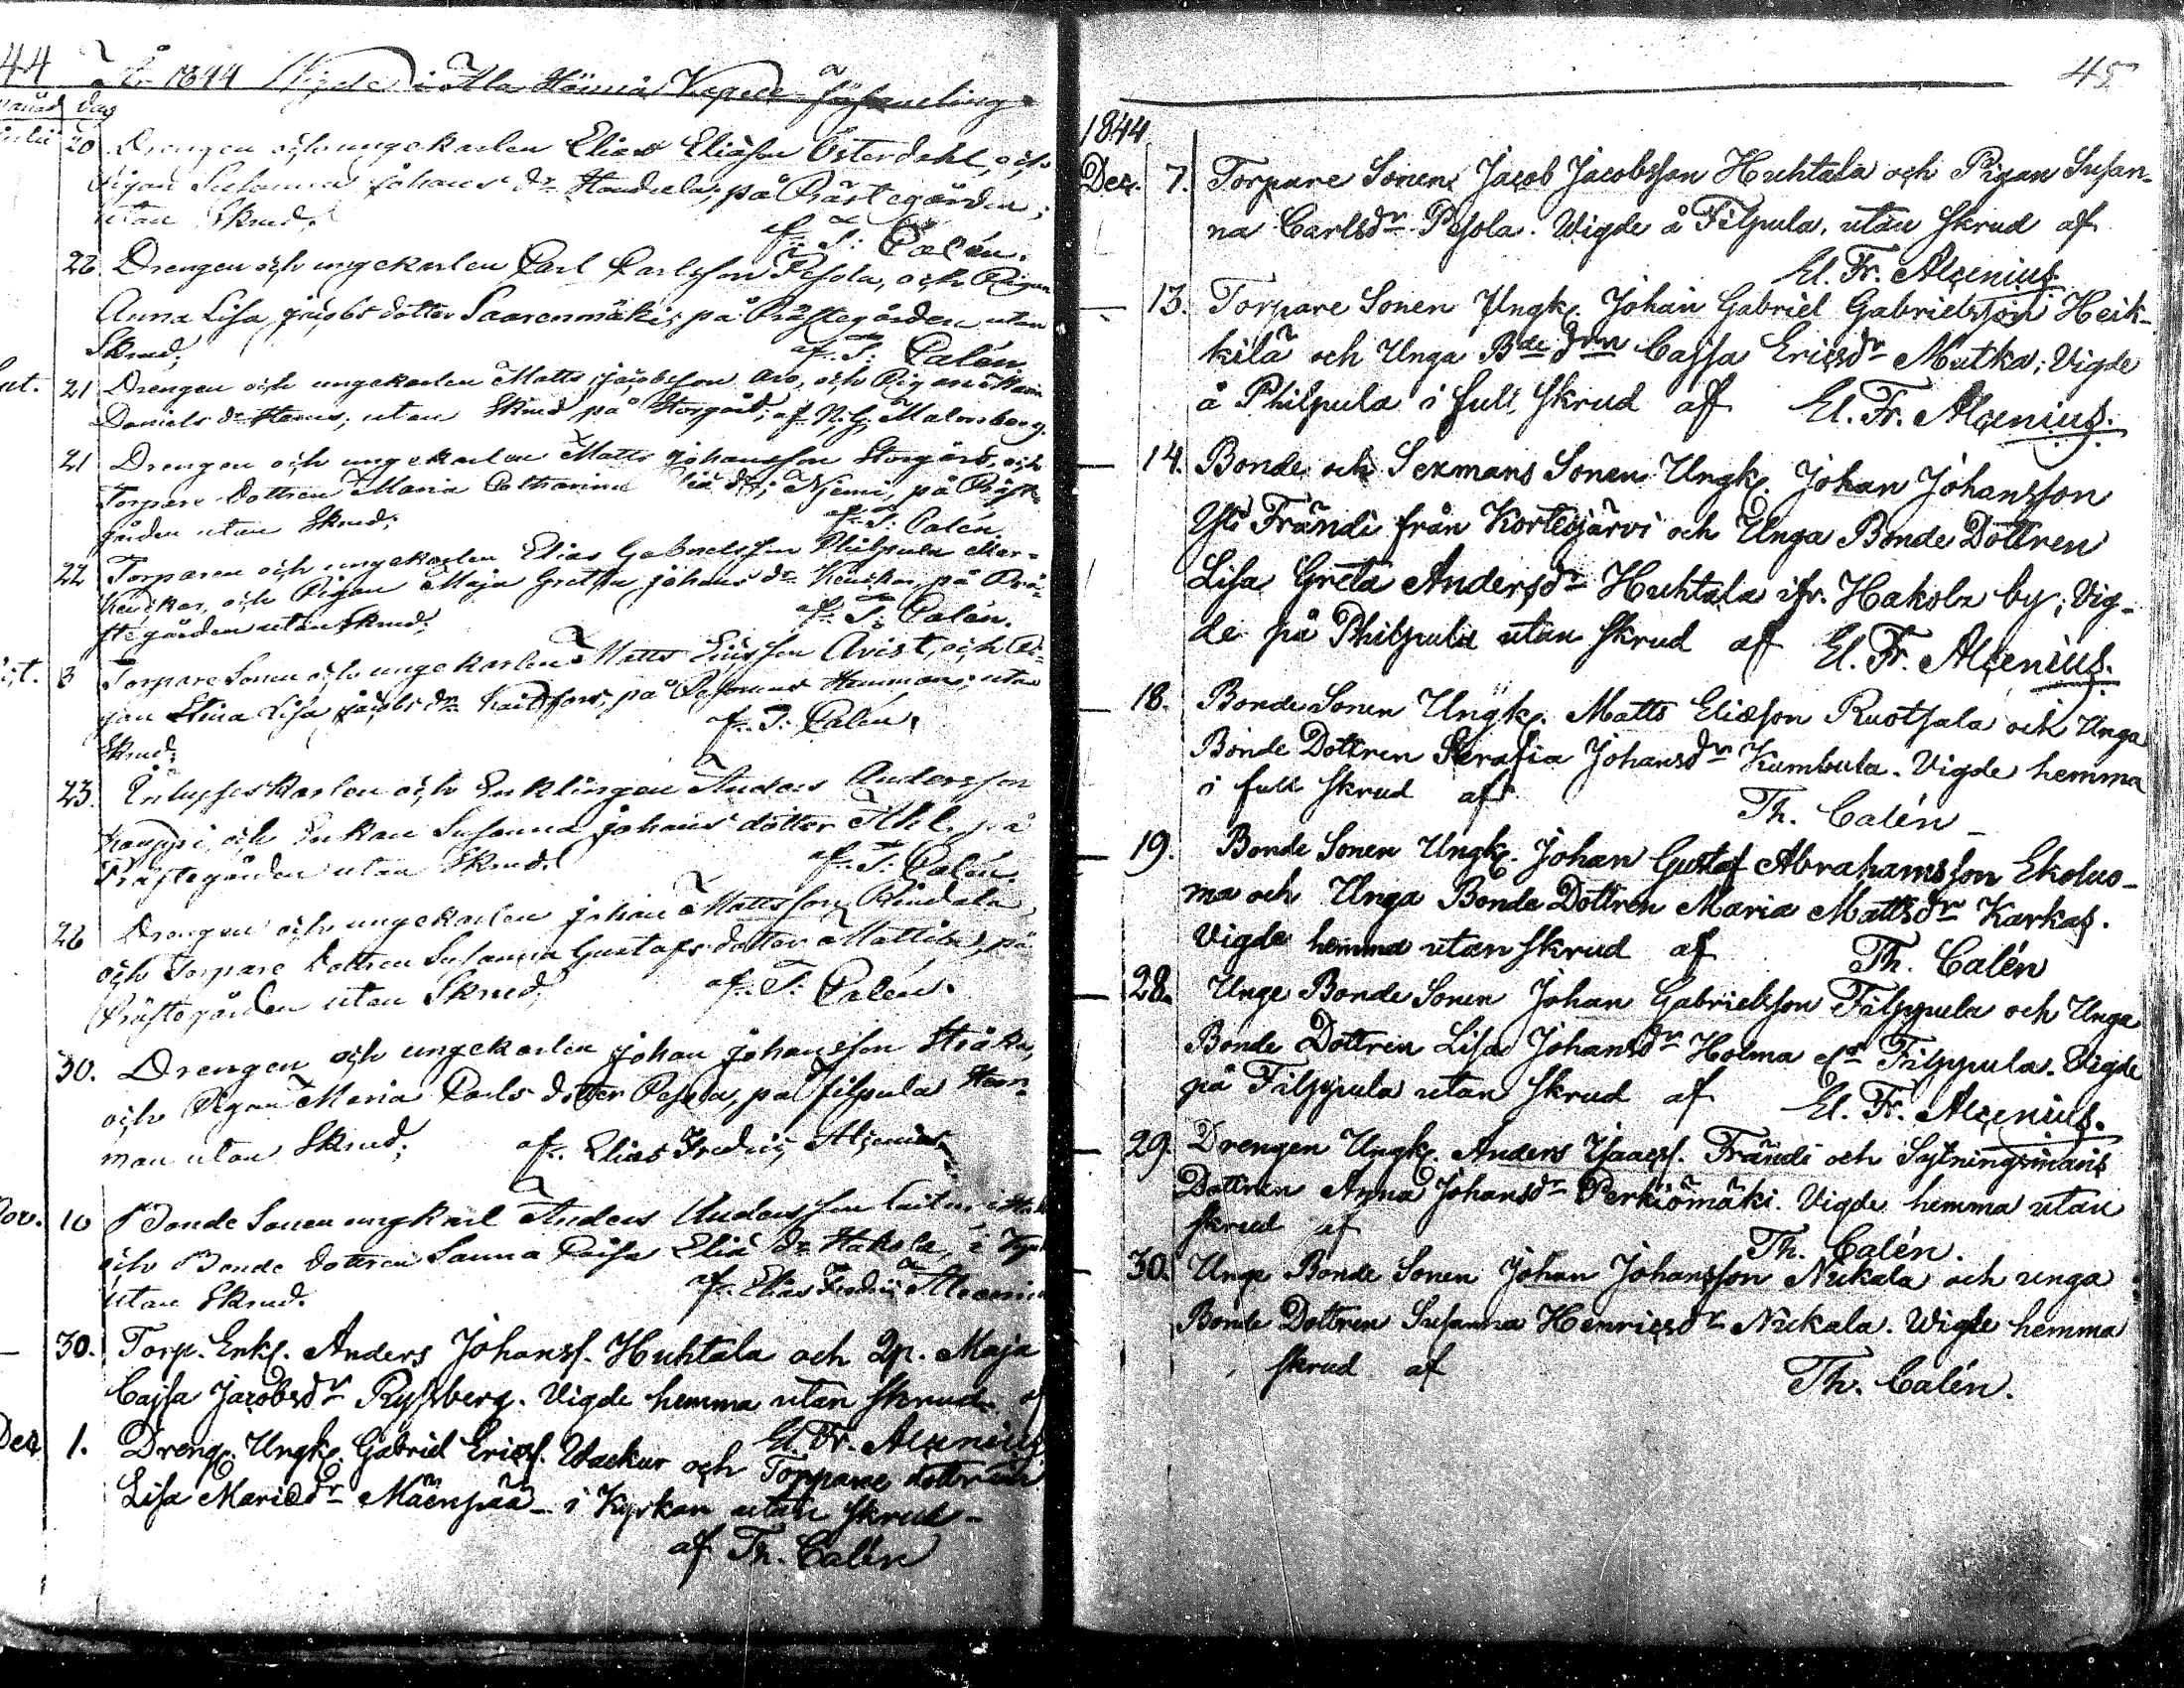 44 År 1844 Vigde i Ala Härmä Capell Församling
Månad Dag
Julii 20 Drengen och ungekarlen Elias Eliasson Österdahl, och
Pigan Susanna Johans dr. på Prästegården;
utan Skrud; af T: Calén.
22. Drengen och ungekarlen Carl Carlsson Pesola, och Pigan
Anna Lisa Jacobs dotter Saarenmäki; på Prästegården utan
Skrud; af T: Calén
21 Drengen och ungekarlen Matts Jacobsson Aro, och Pigan Maria
Daniels dr utan Skrud på Storgård; af N. G. Malmberg.
21 Drengen och ungekarlen Matts Johansson Storgård, och
Torpare Dottren Maria Catharina Eliä dr; Njemi, på Präste-
gården utan Skrud; af T: Calén.
22 Torparen och ungekarlen Elias Gabrielsson Philpula
och Pigan Maja Gretha Johans dr på Prä-
stegården utan skrud; af T: Calén.
3 Torpare Sonen och ungekarlen Matts Ericsson Qvist, och Pi-
gan Stina Lisa Jacobs dr på Hemman; utan
Skrud; af T: Calén.
23. Inhyseskarlen och Enklingen Anders Andersson
Kauppi, och Enkan Susanna Johans dotter på
Prästegården utan Skrud. af T: Calén.
26 Drengen och ungekarlen Johan Mattsson Rindala,
och Torpare Dottren Susanna Gustafs dotter Mattila, på
Prästegården utan Skrud; af T: Calén.
30. Drengen och ungekarlen Johan Johansson
och Pigan Maria Carls dotter Pesola, på Filpula Hem-
man utan Skrud; af Elias Fredric Alcenius
Nov. 10 Bonde Sonen ungkarl Anders Andersson
och Bonde Dottren Sanna Caisa Eliä dr Hakola, i
utan Skrud. af Elias Fredric Alcenius
30. Torp. Enkl. Anders Johanss. Huhtala och Qp. Maja
Cajsa Jacobsdr Ryssberg. Vigde hemma utan skrud af
El. Fr. Alcenius
Dec. 1. Dreng. Ungk. Gabriel Ericss. Wackur och Torpare dottren
Lisa Mariædr Mäenpää i Kyrkan utan skrud
af Th. Calén
45
1844
Dec. 7. Torpare Sonen Jacob Jacobsson Huhtala och Pigan Susan-
na Carlsdr Pesola. Wigde å Filpula, utan skrud af
El. Fr. Alcenius.
13. Torpare Sonen Ungk. Johan Gabriel Gabrielsson Heik-
kilä och Unga Bde drn Cajsa Ericsdr Mutka; Vigde
å Philpula i full skrud af El. Fr. Alcenius.
14. Bonde och Sexmans Sonen Ungk. Johan Johansson
Yli Frändi från Kortesjärvi och Unga Bonde Dottren
Lisa Greta Andersdr Huhtala ifr. Hakola by; Vig-
de på Philpula utan skrud af El. Fr. Alcenius.
18. Bonde Sonen Ungk. Matts Eliæson Ruotsala och Unga
Bonde Dottren Serafia Johansdr Kumbula. Vigde hemma
i full skrud af Th. Calén
19. Bonde Sonen Ungk. Johan Gustaf Abrahamsson Ekoluo-
ma och Unga Bonde Dottren Maria Mattsdr Karkas.
Vigde hemma utan skrud af Th. Calén
28. Unge Bonde Sonen Johan Gabrielsson Filppula och Unga
Bonde Dottren Lisa Johansdr Holma elr Filppula. Vigde
på Filppula utan skrud af El. Fr. Alcenius.
29. Drengen Ungk. Anders Isaacss. Frändi och Sytningsmans
Dottren Anna Johansdr Perkiömäki. Vigde hemma utan
skrud af Th. Calén.
30. Unge Bonde Sonen Johan Johansson Nukala och unga
Bonde Dottren Susanna Henricsdr Nukala. Wigde hemma
skrud af Th. Calén.